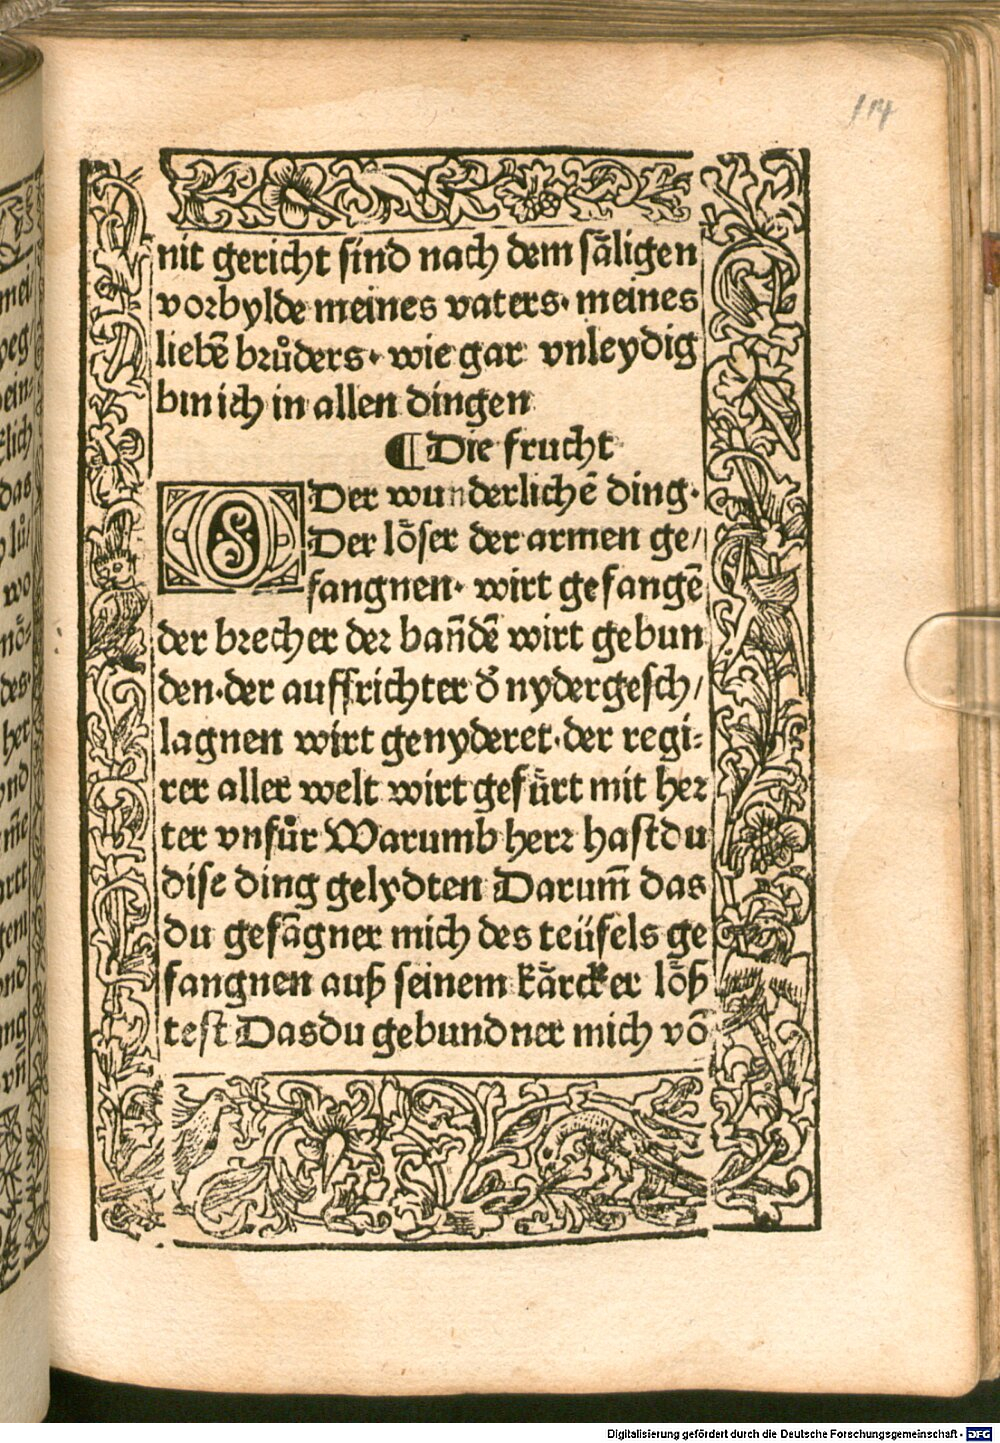 114
nit gericht sind nach dem såligen
vorbylde meines vaters· meines
liebē brůders· wie gar vnleydig
bin ich in allen dingen
¶ Die frucht
O Der wunderlichē ding·
Der lȫser der armen ge/
fangnen· wirt gefangē
der brecher der bañdē wirt gebun
den·der auffrichter d̄ nydergesch/
lagnen wirt genyderet·der regi⸗
rer aller welt wirt gefu̇rt mit her
ter vnfůr Warumb herr hastdu
dise ding gelydten Darum̄ das
du gefāgner mich des teüfels ge
fangnen auß seinem kårcker lȫß
test Dasdu gebundner mich vō
mei/
weg/
lich
das
lů/
wo
nȫ⸗
des·
her
ynd
artt
ond
ung
vñ
Digitalisierung gefördert durch die Deutsche Forschungsgemeinschaft - DFG